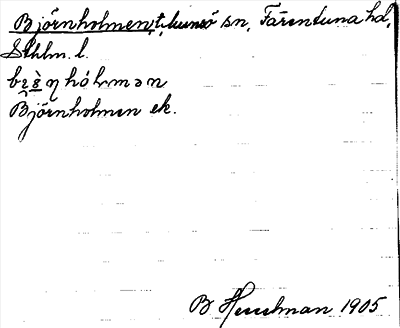 Björnholmen, t. Munsö sn, Färentuna hd,
Sthlm. l.
Björnholmen ek.
B Hesselman 1905